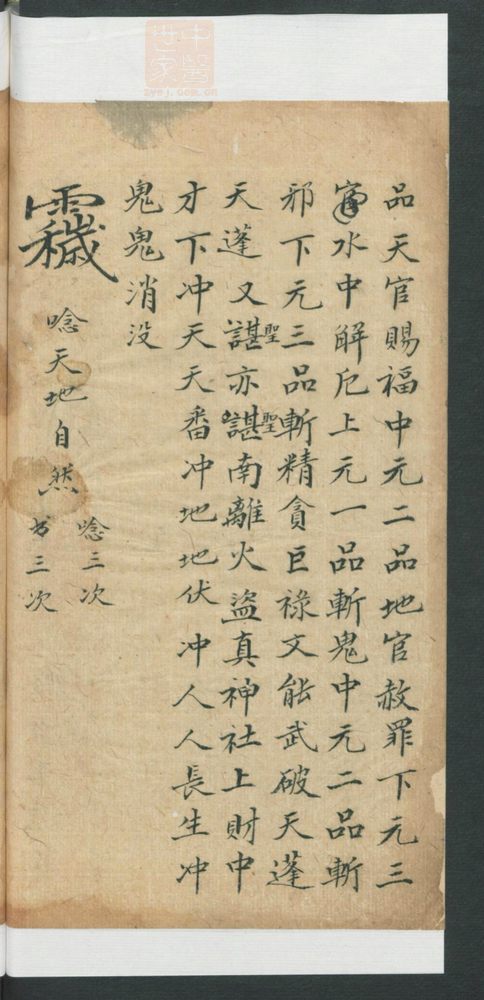 品天官賜福中元二品地官赦罪下元三
水中解厄上元一品斬鬼中元二品斬
邪下元三品斬精貪巨祿文能武破天蓬
天蓬又諶聖亦諶聖南離火盜真神社上財中
才下冲天天番冲地地伏冲人人長生冲
鬼鬼消没
唸天地自然
唸三次
书三次
中醫世家
zysj.com.cn